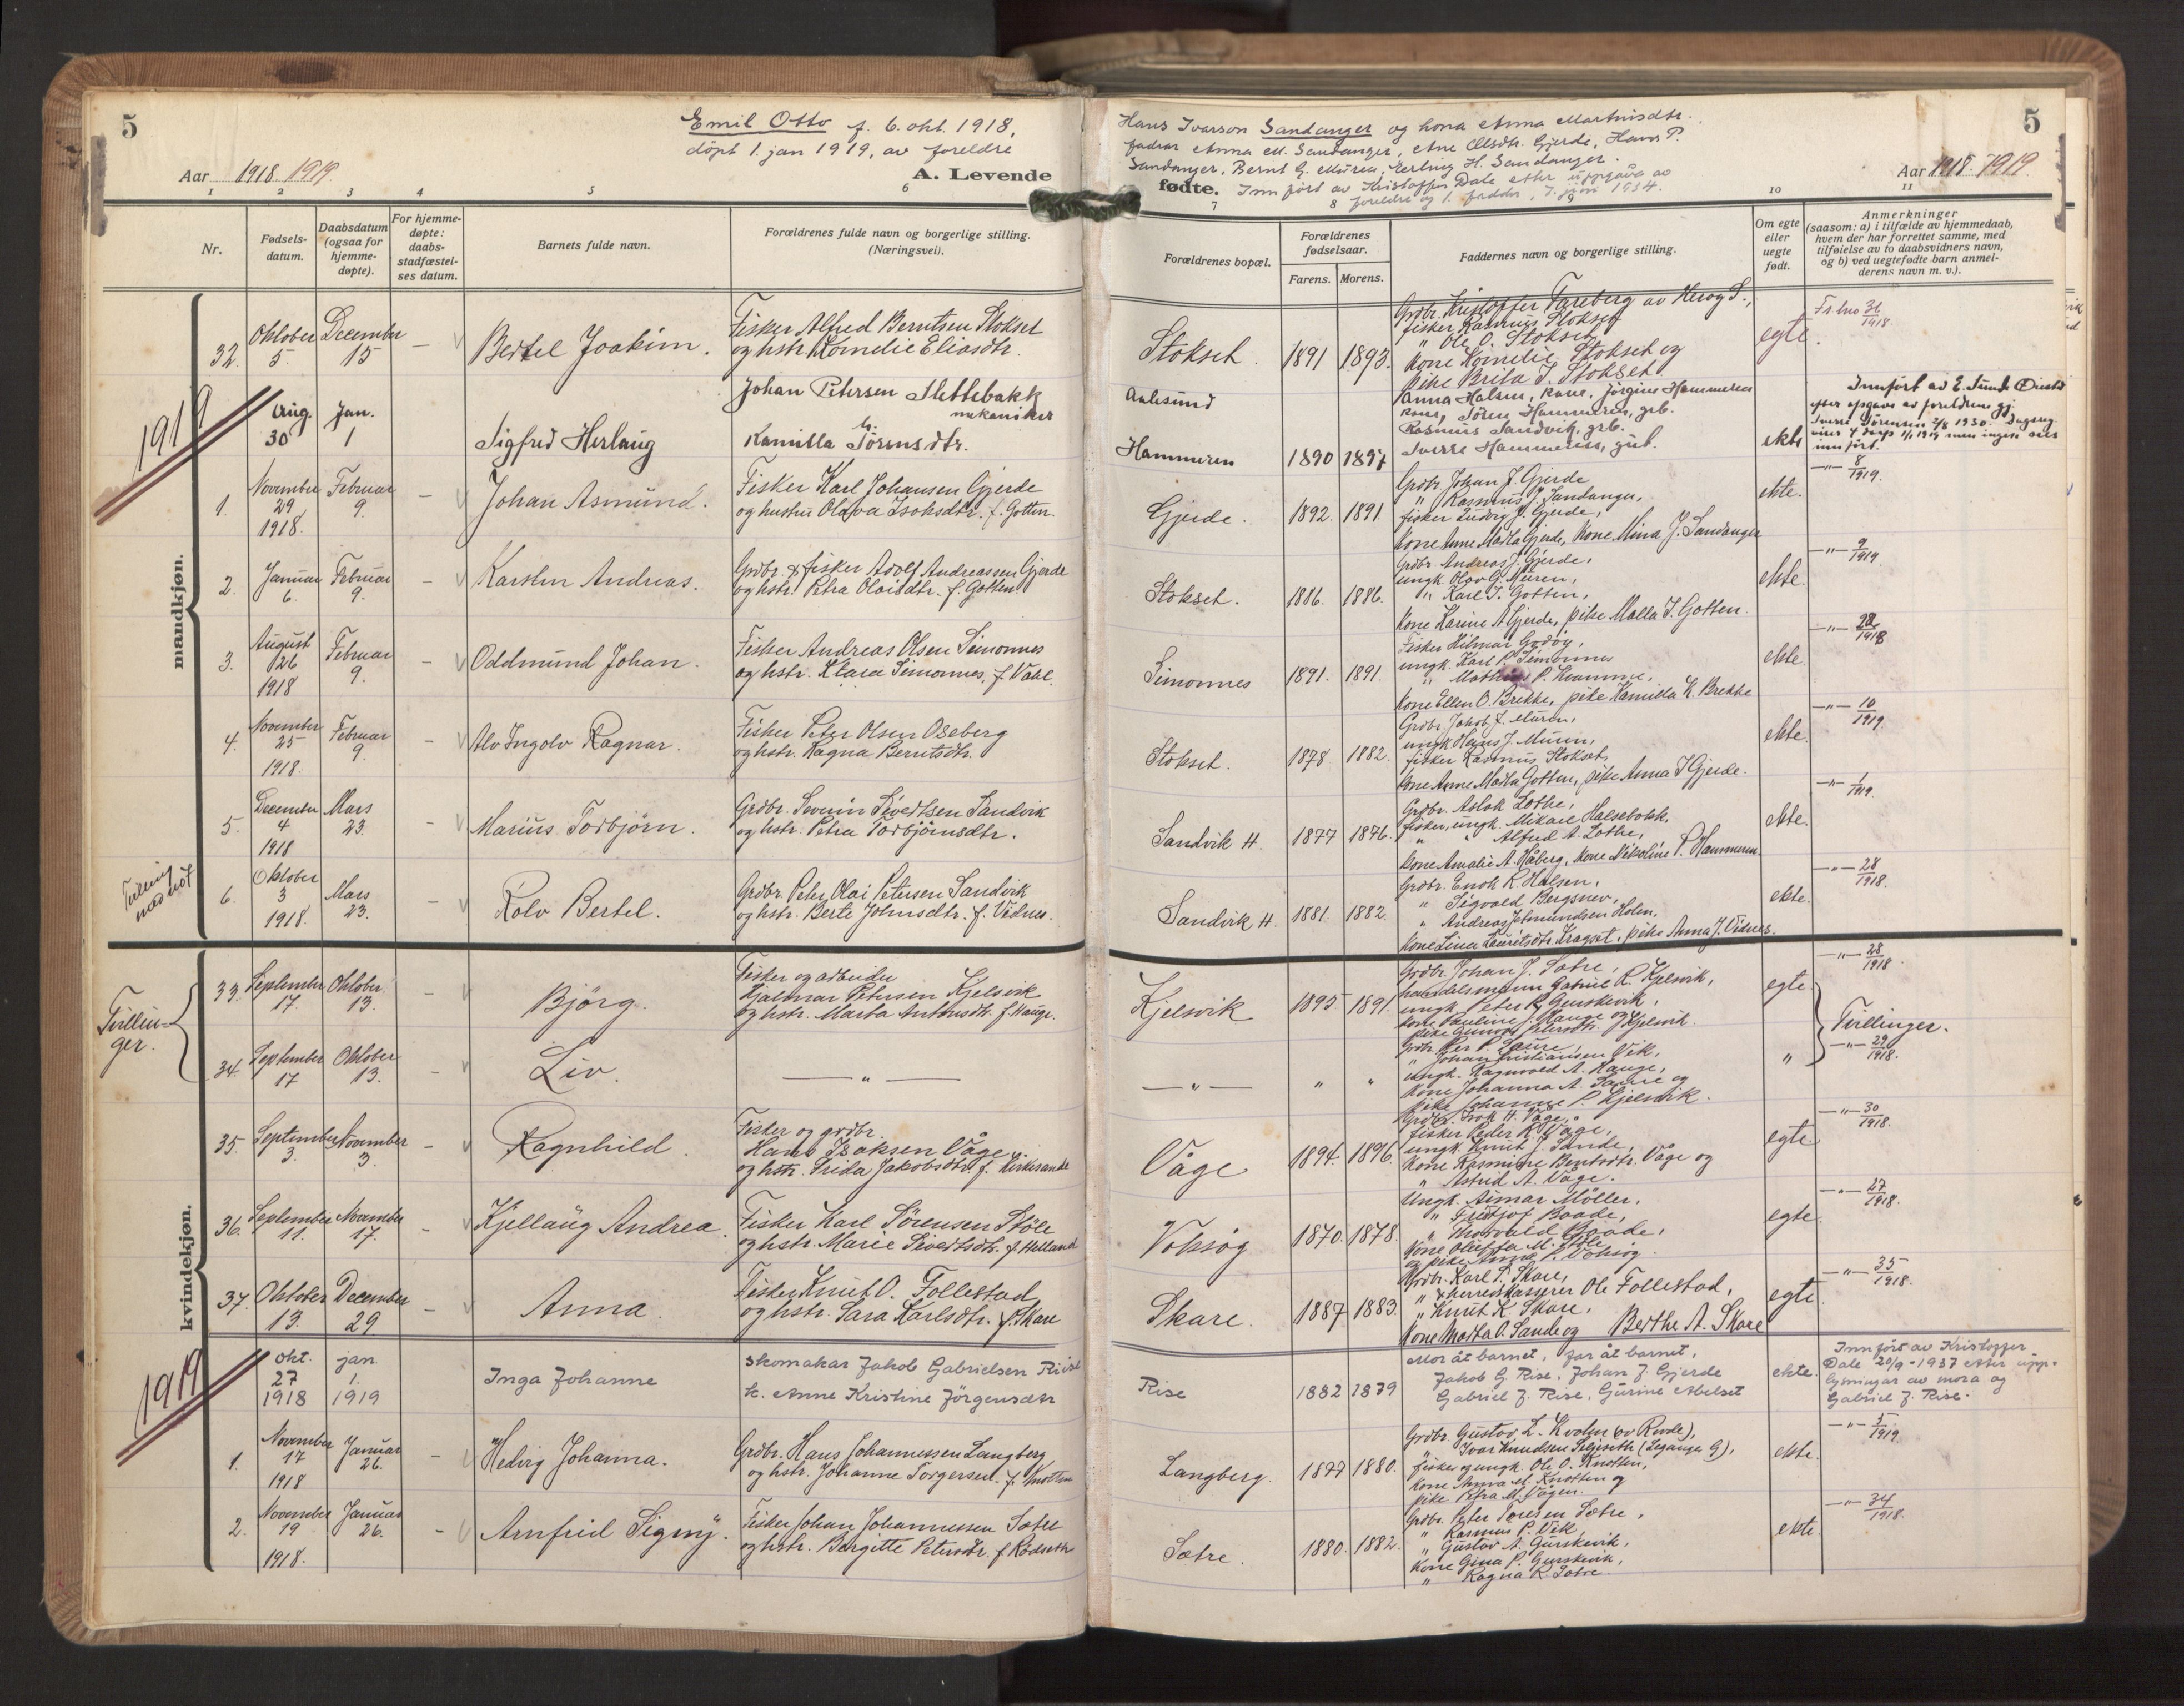 5
Emil Otto f. 6. okt. 1918,
døpt 1. jan 1919, av foreldre
Aar 1918. 1919.
A. Levende
Hans Ivarson Sandanger og kona Anna Martinisdtr.
fadrar Anna M. Sandanger, Ane Olsdtr. Gjerde, Hans P.
Sandanger, Bernt G. Müren, Erling H. Sandanger.
fødte.
Innført av Kristoffer Dale etter uppgåva av
foreldre og 1. fadder, 7. juni 1934.
5
Aar 1918. 1919.
1 2 3 4 5 6
7 8 9 10 11
Nr.
Fødsels-
datum.
Daabsdatum
(ogsaa for
hjemme-
døpte).
For hjemme-
døpte:
daabs-
stadfæstel-
ses datum.
Barnets fulde navn.
Forældrenes fulde navn og borgerlige stilling.
(Næringsvei).
Forældrenes bopæl.
Forældrenes
fødselsaar.
Farens. Morens.
Faddernes navn og borgerlige stilling.
Om egte
eller
uegte
født.
Anmerkninger
(saasom: a) i tilfælde av hjemmedaab,
hvem der har forrettet samme, med
tilføielse av to daabsvidners navn,
og b) ved uegtefødte barn anmel-
derens navn m. v.).
mandkjøn.
32. Oktober 5. December 15 — Bertel Joakim.
Fisker Alfred Berntsen Stokset
og hstr. Kornelie Eliasdtr.
Stokset. 1891 1893.
Grdbr. Kristoffer Tareberg av Herøy S.,
fisker Rasmus Stokset
" Ole O. Stokset
kone Kornelie Stokset og
pike Brita J. Stokset.
egte.
36/1918.
1919
Aug. 30 Jan. 1 Sigfred Herlaug
Johan Petersen Slettebakk
mekaniker
Kamilla Sørensdtr.
Aalesund
Hammeren 1890 1897
Anna Halsen, kone, Jørgine Hammeren
kone, Søren Hammeren, grb.
Rasmus Sandvik, grb.
Sverre Hammeren, gut.
ekte
1. November 29 1918. Februar 9. — Johan Asmund.
Fisker Karl Johansen Gjerde
og hustru Olava Isaksdtr. f. Gotten.
Gjerde. 1892. 1891.
Grdbr. Johan J. Gjerde
" Rasmus J. Sandanger,
fisker Ludvig J. Gjerde,
kone Anne Marta Gjerde, kone Mina J. Sandanger
ekte.
—"— 8/1919.
2. Januar 6. Februar 9. — Karsten Andreas.
Grdbr. & fisker Adolf Andreassen Gjerde
og hstr. Petra Olaisdtr. f. Gotten
Stokset. 1886. 1886.
Grdbr. Andreas J. Gjerde,
ungk. Olav G. Müren,
" Karl J. Gotten,
kone Karine A. Gjerde, pike Malla J. Gotten.
ekte.
—"— 9/1919
3. August 26 1918 Februar 9. — Oddmund Johan.
Fisker Andreas Olsen Simonnes
og hstr. Klara Simonnes, f. Vatle.
Simonnes 1891. 1891.
Fisker Hilmar Godøy,
ungk. Karl P. Simonnes
kone Ellen O. Brekke, pike Kamilla K. Brekke
ekte.
4. November 25 1918. Februar 9 — Alv Ingolv Ragnar.
Fisker Peter Olsen Oseberg
og hstr. Ragna Berntsdtr.
Stokset. 1878. 1882.
Grdbr. Jakob J. Müren,
ungk. Hans J. Müren,
fisker Rasmus Stokset,
kone Anne Marta Gotten, pike Anna J. Gjerde.
ekte.
—"— 10/1919.
5. December 4 1918 Mars 23. — Marius Torbjørn.
Grdbr. Severin Sivertsen Sandvik
og hstr. Petra Torbjørnsdtr.
Sandvik H. 1877 1876.
Grdbr. Aslak Lothe,
fisker, ungk. Mikael Halsebakk,
" Alfred A. Lothe,
kone Amalie A. Håberg, kone Nikoline P. Hammeren.
ekte.
—"— 1/1919.
Tvilling
med no 7
6. Oktober 3 1918. Mars 23. — Rolv Bertel.
Grdbr. Peter Olai Petersen Sandvik
og hstr. Berte Johnsdtr. f. Vidnes.
Sandvik H. 1881. 1882.
Grdbr. Enok R. Halsen,
" Sigvald Bergsnev,
" Andreas Jetmundsen Holm,
kone Lina Lauritsdtr. Kragset, pike Anna J. Vidnes.
ekte.
—"— 28/1918.
kvindekjøn.
Tvillin-
ger.
33. September 17. Oktober 13. — Bjørg.
Fisker og arbeider
Hjalmar Petersen Kjelsvik
og hstr. Marta Antonsdtr. f. Hauge.
Kjelsvik 1895. 1891.
Grdbr. Johan J. Sætre,
handelsmann Gabriel R. Kjelsvik,
ungk. Peter R. Gurskevik,
kone Pauline J. Hauge og
egte.
—"— 28/1918.
Tvillinger.
34. September 17 Oktober 13. — Liv.
— " —
— " — " "
Grdbr. Per P. Saure,
" Johan Kristiansen Vik,
ungk. Ragnvald A. Hauge,
kone Johanna A. Saure og
pike Johanne P. Kjelsvik.
"
—"— 29/1918.
35. September 3. November 3. — Ragnhild.
Fisker og grdbr.
Hans Isaksen Våge
og hstr. Frida Jakobsdtr. f. Kirkesande
Våge 1894. 1896.
Grdbr. Isak H. Våge,
fisker Peder R. Våge,
ungk. Knut J. Sande,
kone Rasmine Berntsdtr. Våge og
" Astrid A. Våge.
egte
—"— 30/1918.
36. September 11. November 17. — Kjellaug Andrea.
Fisker Karl Sørensen Støle
og hstr. Marie Sivertsdtr. f. Helland
Voksøy 1870. 1878.
Ungk. Aimar Møller,
" Fridtjof Baade,
" Thorvald Baade,
kone Oluffa M. Støle
og pike Anna P. Voksøy.
egte.
—"— 27/1918.
37. Oktober 13. December 29 — Anna.
Fisker Knut O. Follestad
og hstr. Sara Karlsdtr. f. Skare
Skare. 1887 1883.
Grdbr. Karl T. Skare,
" & herredskasserer Ole Follestad,
" Knut K. Skare,
kone Marta O. Sande og Berthe A. Skare
egte
—"— 35/1918.
1919
okt. 27 1918 jan. 1. 1919 Inga Johanne
Skomakar Jakob Gabrielsen Riise
k. Anne Kristine Jörgensdtr
Rise 1882 1879
Mor åt barnet, far åt barnet,
Jakob G. Rise, Johan J. Gjerde
Gabriel J. Rise, Gurine Abelset
ekte.
Innført av Kristoffer
Dale 20/9-1937 etter upp-
lysningar av mora og
Gabriel J. Rise.
1. November 17 1918 Januar 26. — Hedvig Johanna.
Grdbr. Hans Johannessen Langberg
og hstr. Johanne Torgersen. f. Knotten
Langberg. 1877 1880.
Grdbr. Gustav L. Kvalm (ov Rovde),
fisker og ungk. Ole O. Knotten,
kone Anna M. Knotten og
pike Petra M. Vågen.
ekte.
—"— 5/1919.
2. November 19 1918. Januar 26. — Arnfrid Signy.
Fisker Johan Johannessen Sætre
og hstr. Birgitte Petersdtr. f. Rødseth
Sætre. 1880. 1882.
Grdbr. Peter Toresen Sætre,
" Rasmus P. Vik
" Gustav A. Gurskevik,
kone Gina P. Gurskevik,
" Ragna R. Sætre.
ekte.
—"— 34/1918.